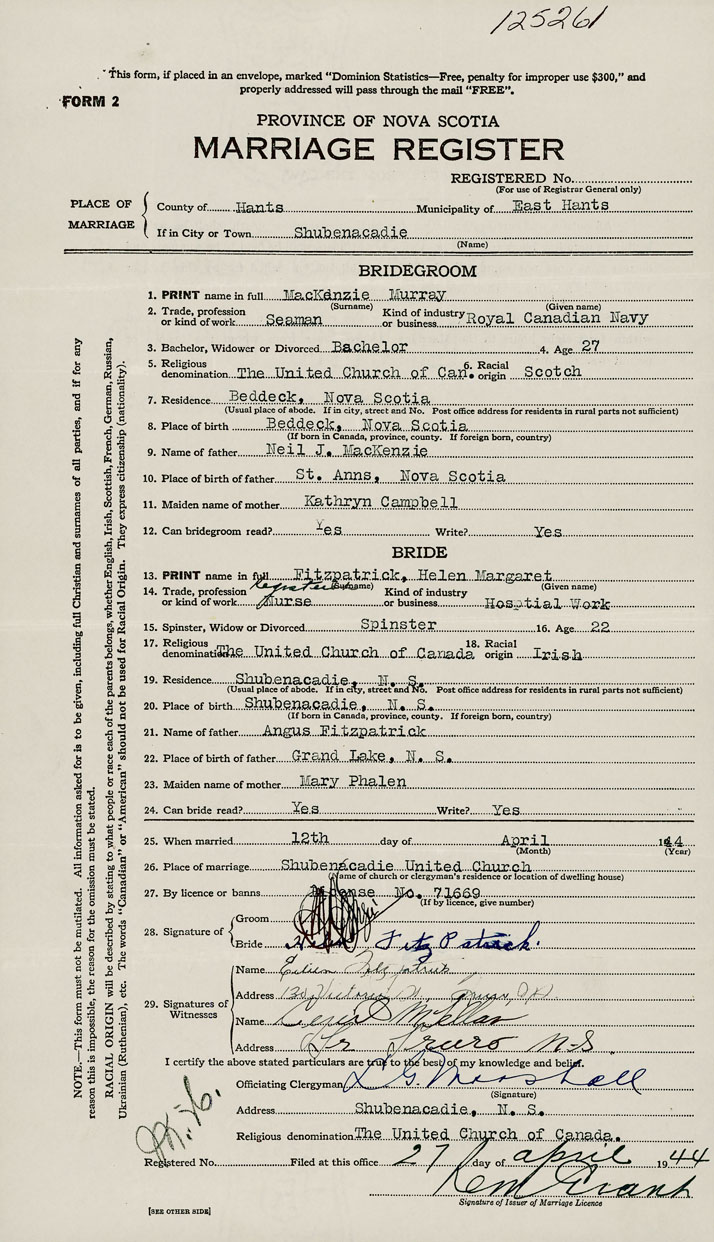 125261
"This form, if placed in an envelope, marked "Dominion Statistics—Free, penalty for improper use $300," and
properly addressed will pass through the mail "FREE".
FORM 2
PROVINCE OF NOVA SCOTIA
MARRIAGE REGISTER
REGISTERED No.
(For use of Registrar General only)
PLACE OF MARRIAGE
County of Hants Municipality of East Hants
If in City or Town Shubenacadie
(Name)
BRIDEGROOM
1. PRINT name in full MacKenzie Murray
(Surname) (Given name)
2. Trade, profession or kind of work Seaman Kind of industry or business Royal Canadian Navy
3. Bachelor, Widower or Divorced Bachelor 4. Age 27
5. Religious denomination The United Church of Can. 6. Racial origin Scotch
7. Residence Beddeck, Nova Scotia
(Usual place of abode. If in city, street and No. Post office address for residents in rural parts not sufficient)
8. Place of birth Beddeck, Nova Scotia
(If born in Canada, province, county. If foreign born, country)
9. Name of father Neil J. MacKenzie
10. Place of birth of father St. Anns, Nova Scotia
11. Maiden name of mother Kathryn Campbell
12. Can bridegroom read? Yes Write? Yes
BRIDE
13. PRINT name in full Fitzpatrick, Helen Margaret
(Surname) (Given name)
14. Trade, profession or kind of work registered Nurse Kind of industry or business Hosptial Work
15. Spinster, Widow or Divorced Spinster 16. Age 22
17. Religious denomination The United Church of Canada 18. Racial origin Irish
19. Residence Shubenacadie, N. S.
(Usual place of abode. If in city, street and No. Post office address for residents in rural parts not sufficient)
20. Place of birth Shubenacadie, N. S.
(If born in Canada, province, county. If foreign born, country)
21. Name of father Angus Fitzpatrick
22. Place of birth of father Grand Lake, N. S.
23. Maiden name of mother Mary Phalen
24. Can bride read? Yes Write? Yes
25. When married 12th day of April 1944
(Month) (Year)
26. Place of marriage Shubenacadie United Church
(Name of church or clergyman's residence or location of dwelling house)
27. By licence or banns License No. 71669
(If by licence, give number)
28. Signature of
Groom
Bride Helen Fitz Patrick.
29. Signatures of Witnesses
Name Fitzpatrick
Address 130 Victoria St.
Name Cecil McLellan
Address Truro N.S.
I certify the above stated particulars are true to the best of my knowledge and belief.
Officiating Clergyman L G. Marshall
(Signature)
Address Shubenacadie, N. S.
Religious denomination The United Church of Canada.
Registered No. Filed at this office 27 day of april 1944
Grant
Signature of Issuer of Marriage Licence
[SEE OTHER SIDE]
NOTE.—This form must not be mutilated. All information asked for is to be given, including full Christian and surnames of all parties, and if for any
reason this is impossible, the reason for the omission must be stated.
RACIAL ORIGIN will be described by stating to what people or race each of the parents belongs, whether English, Irish, Scottish, French, German, Russian,
Ukrainian (Ruthenian), etc. The words "Canadian" or "American" should not be used for Racial Origin. They express citizenship (nationality).